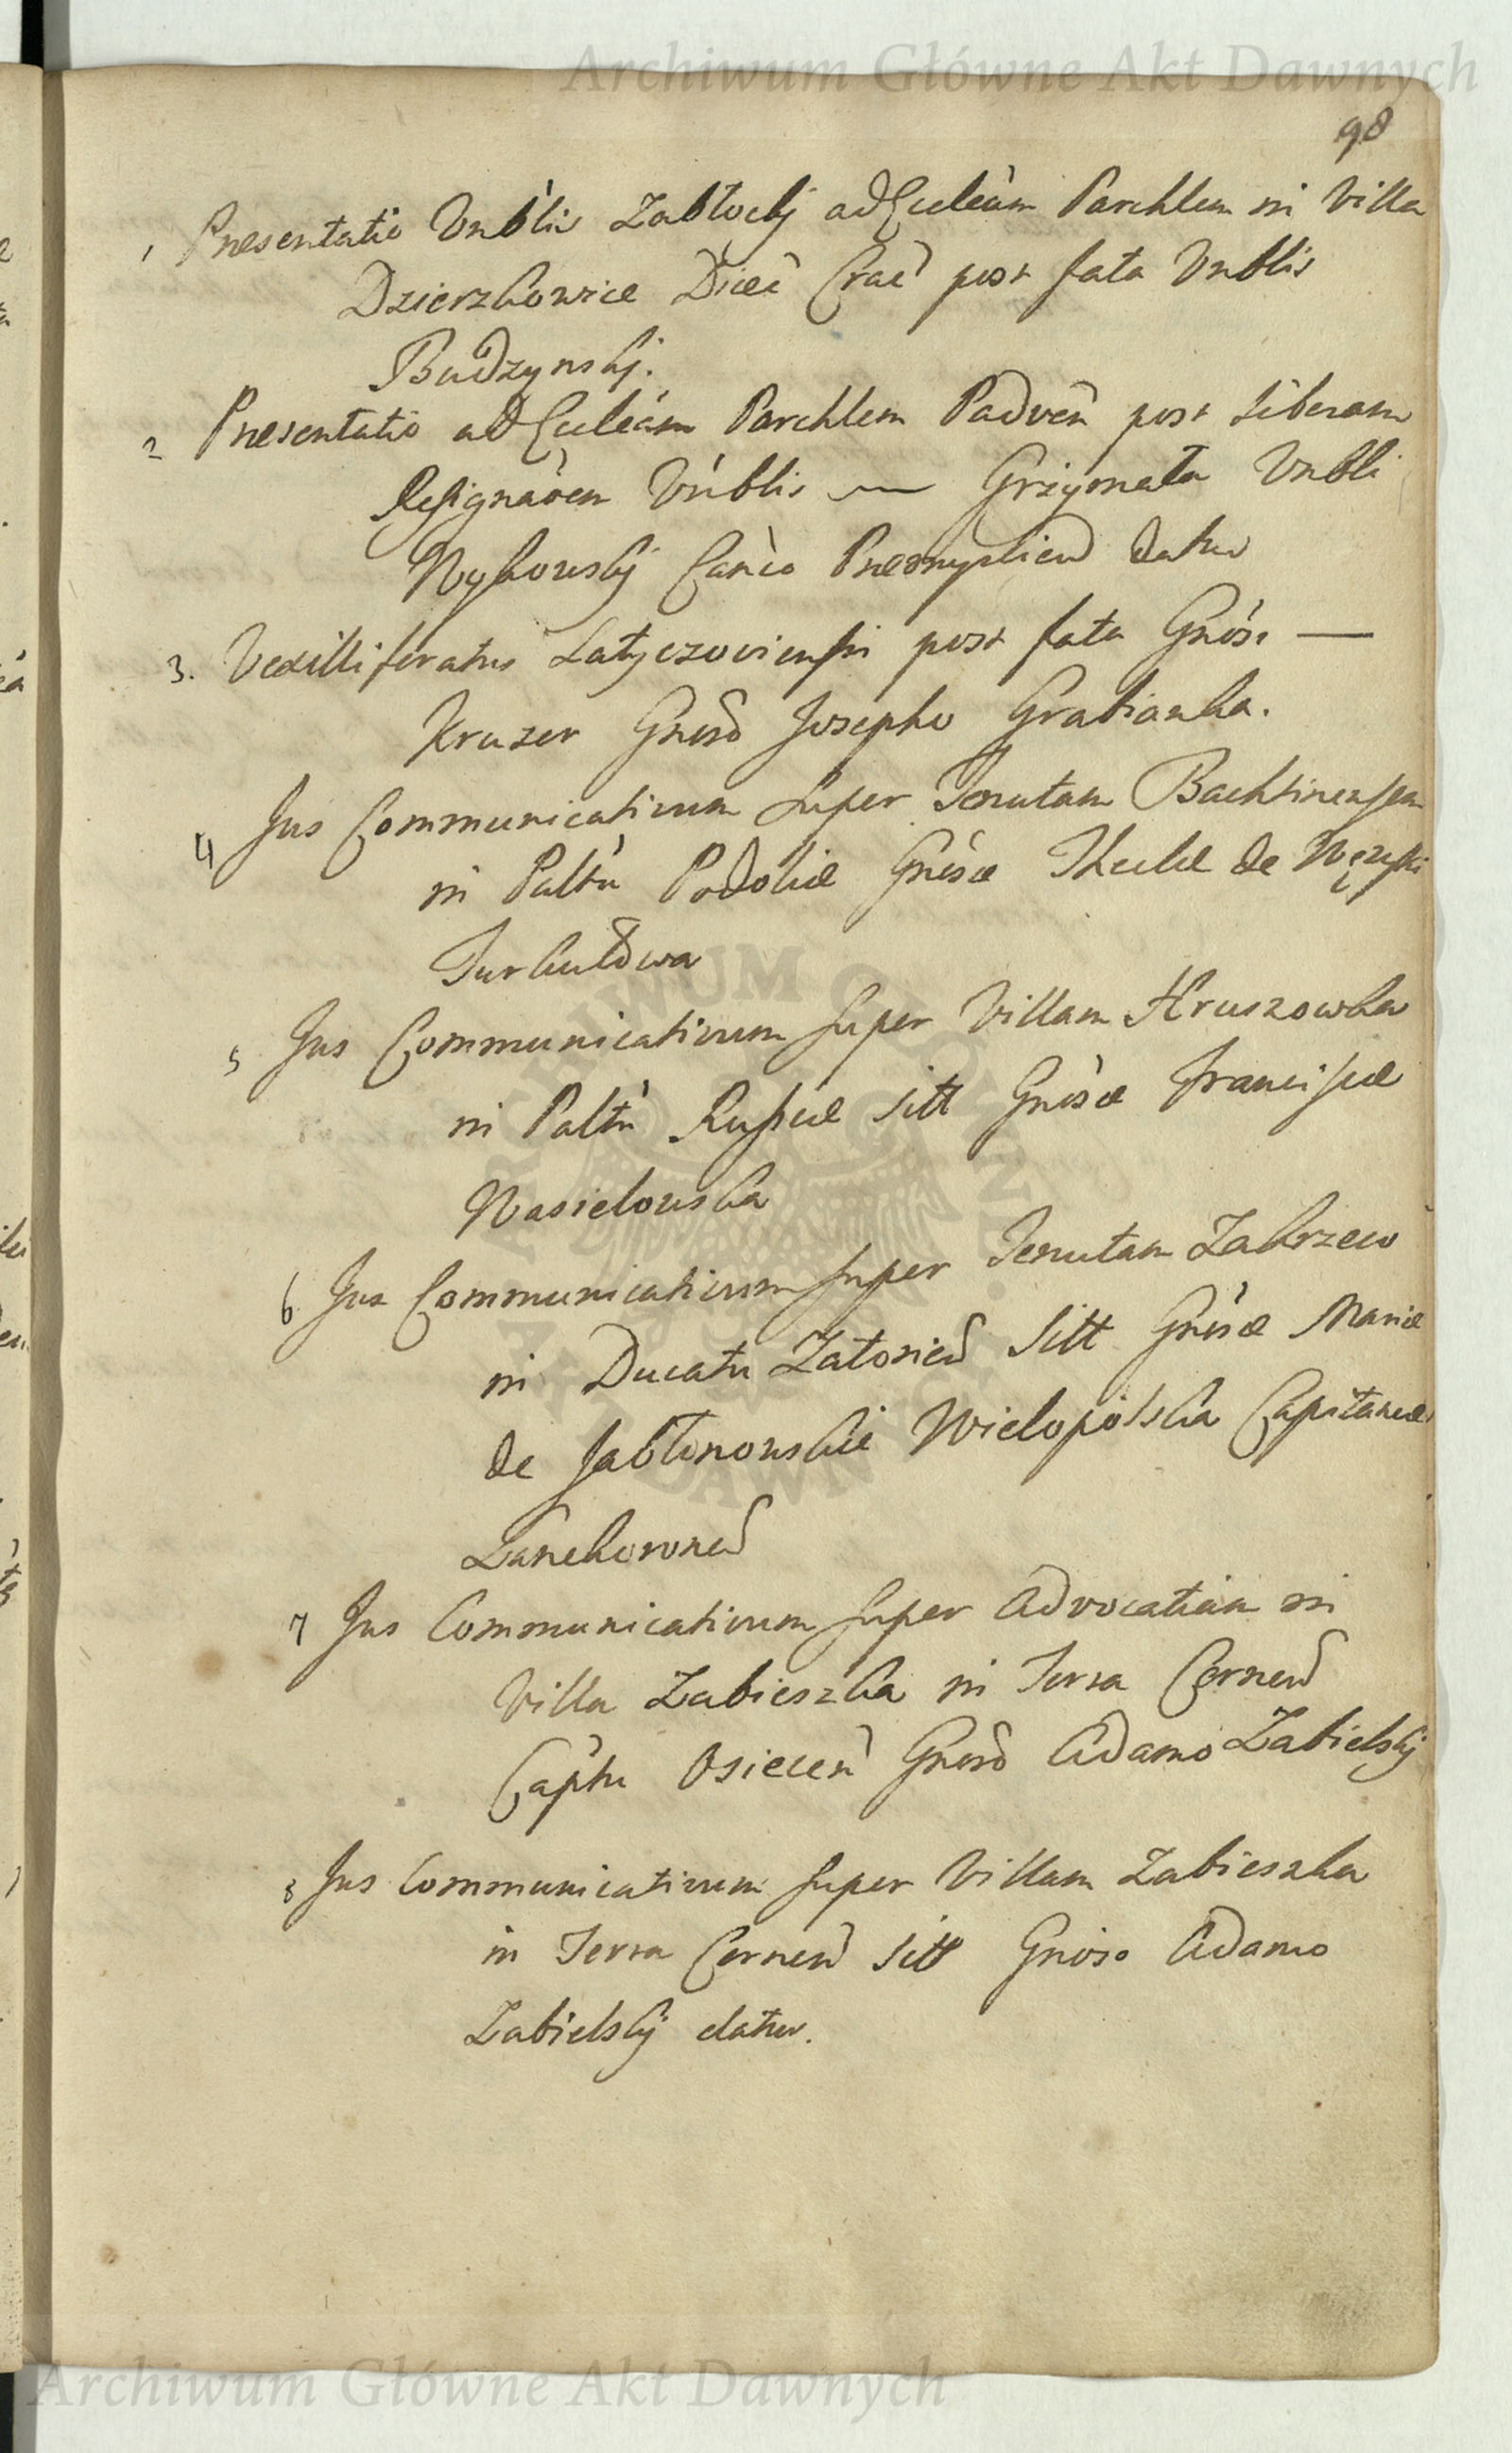 Archiwum Główne Akt Dawnych
98
1 Presentatio Vnblis Zabłocky ad Eccleam Parchlem in Villa
Dzierzkowice Diec Crac post fata Vnblis
Budzynsky.
2 Presentatio ad Eccleam Parchlem Padven post liberam
Resignaoem Vnblis — Grzymała Vnbli
Wykowsky Canco Premyslien datur
3. Vexilliferatus Latyczoviensis post fata Gnosi —
Kruzer Gnoso Josepho Grabianka.
4 Jus Communicativum super Tenutam Bachtinensem
in Palttu Podoliæ Gnosæ Theclæ de
Turkułowa
5 Jus Communicativum super Villam Hruszowka
in Palttu Russiæ sitt Gnosæ Franciscæ
Wasielowska
6 Jus Communicativum super Tenutam Zakrzew
in Ducatu Zatorien Sitt Gnosæ Mariæ
de Jabłonowskie Wielopolska Capitaneæ
Lanckoronen
7 Jus Communicativum super Advocatiam in
Villa Zabieszka in Terra Cernen
Capttu Osiecen Gnoso Adamo Zabielsky
8 Jus Communicativum super Villam Zabieszka
in Terra Cernen sitt Gnoso Adamo
Zabielsky datur.
Archiwum Główne Akt Dawnych